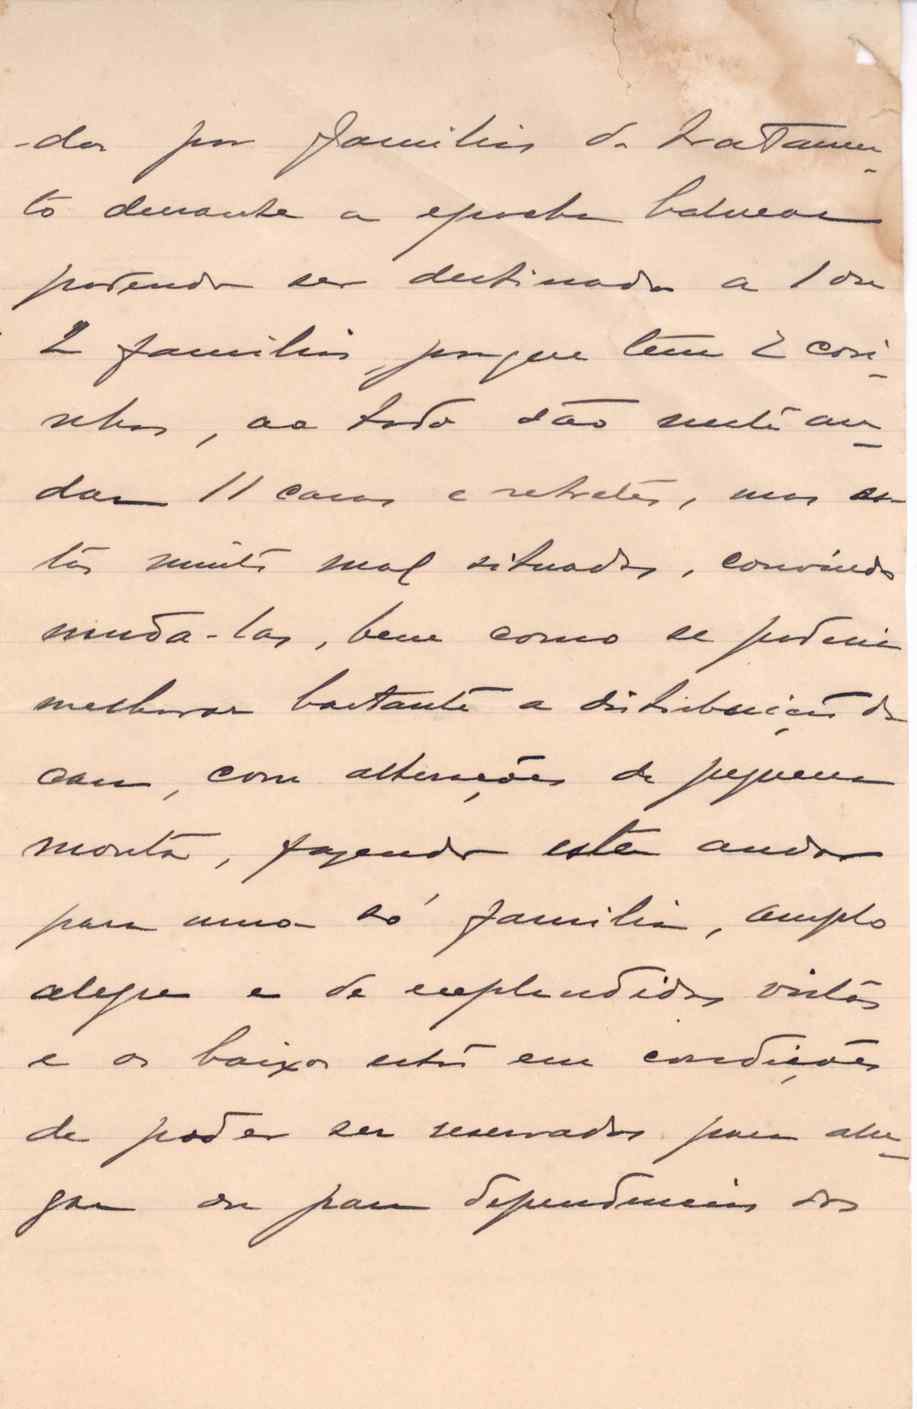 -dos por familias de tratamen-
to durante a epocha balnear
podendo ser destinado a 1 ou
2 familias, porque tem 2 cosi-
nhas, ao todo são neste an-
dar 11 casas e retretes, mas es-
tas muito mal situadas, convindo
muda-las, bem como se poderia
melhorar bastante a distribuição da
casa, com alterações de pequena
monta, fazendo este andar
para uma só familia, amplo
alegre e de explendidas vistas
e os baixos estão em condições
de poder ser reservados para alu-
gar ou para dependencias dos